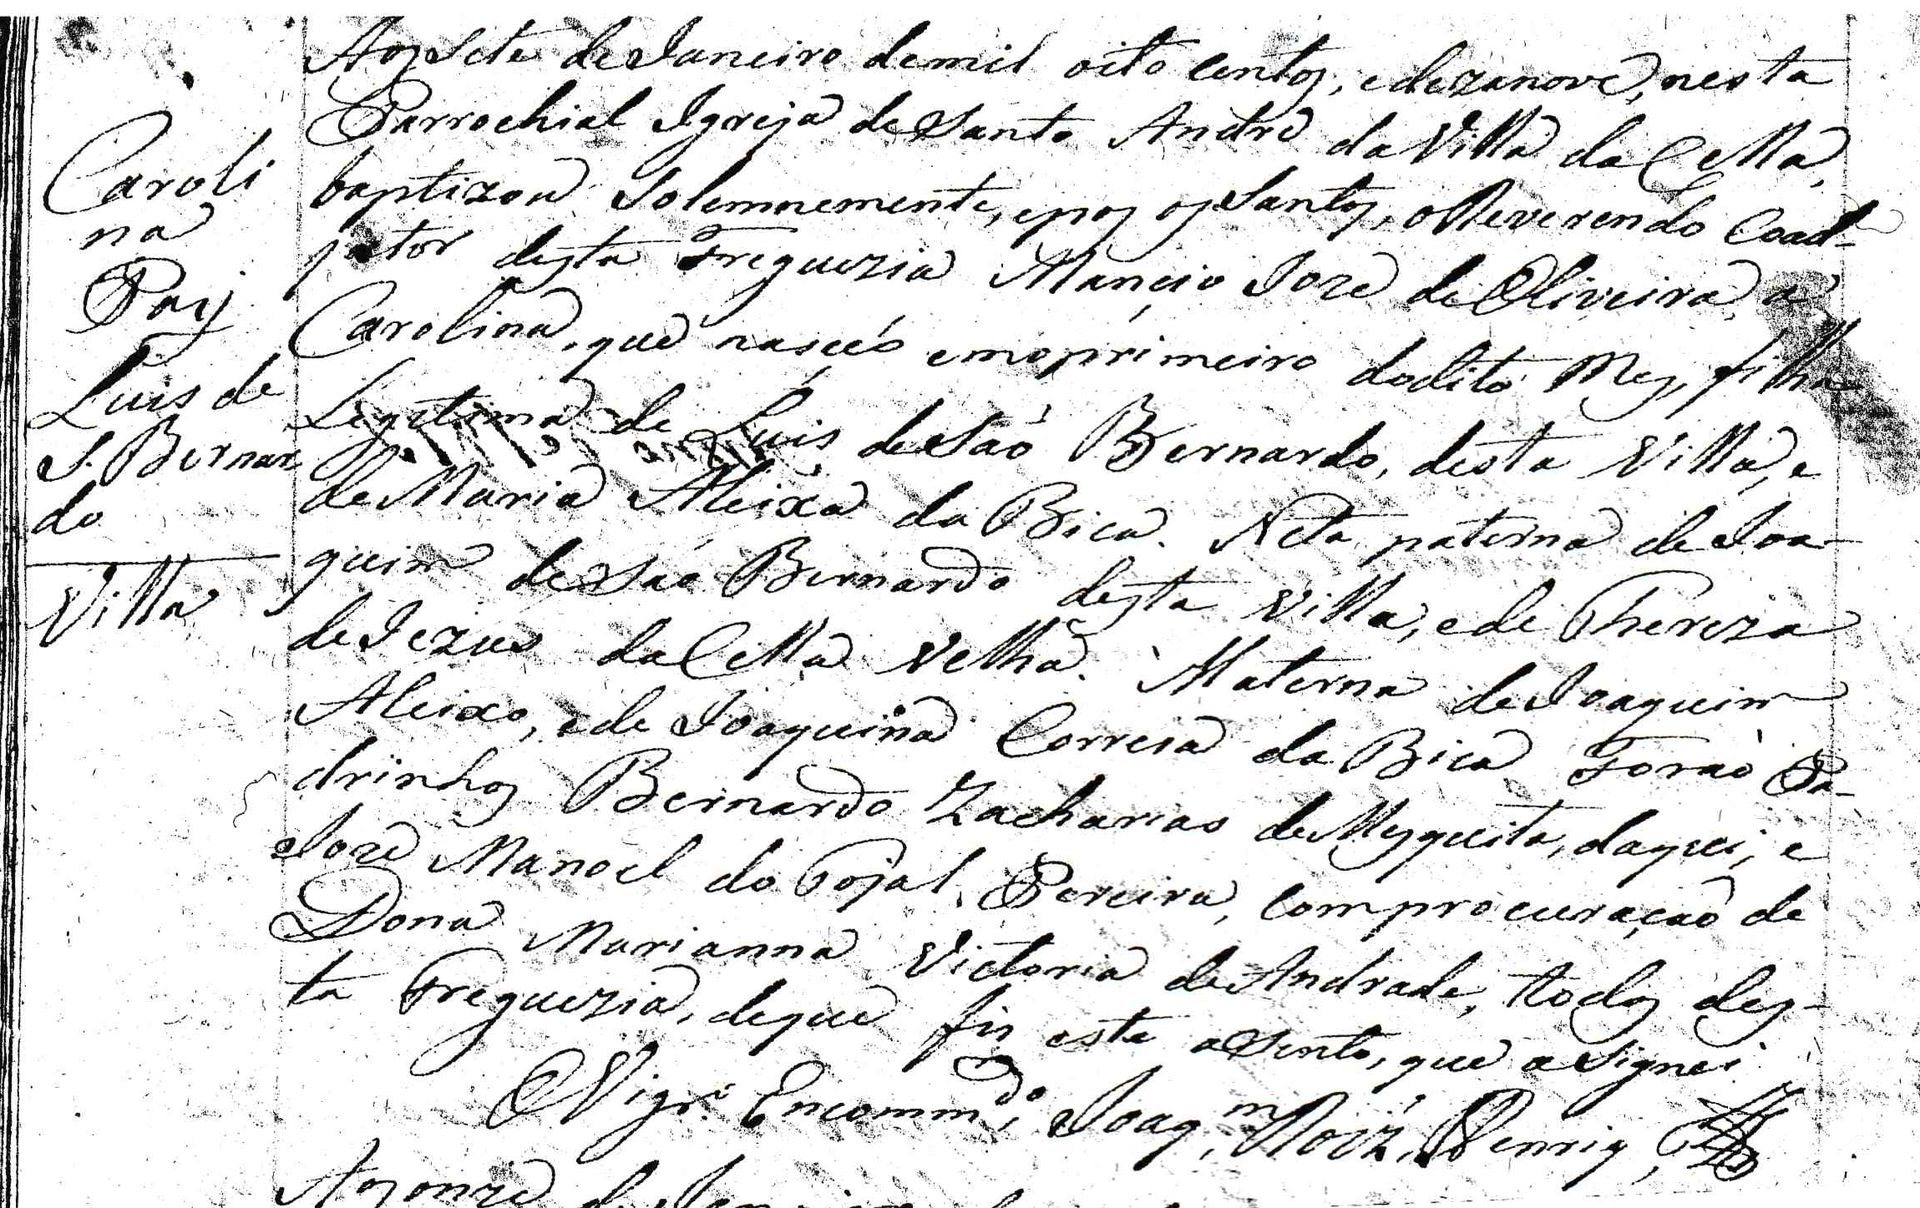 Caroli
na
Pay
Luis de
S. Bernar
do
Villa
Aos Sete de Janeiro de mil oito centos, e dezanove, nesta
Parrochial Igreja de Santo André da Villa da Cella,
baptizou Solemnemente, e pos os Santos, o Reverendo Coad-
jutor desta Freguezia Mancio Jozé de Oliveira, a
Carolina, que nasceo em o primeiro do dito Mes, filha
Legitima de Luis de Saõ Bernardo, desta Villa, e
de Maria Aleixa da Bica. Neta paterna de Joa-
quim de Saõ Bernardo desta Villa, e de Thereza
de Jezus da Cella Velha. Materna de Joaquim
Aleixo, e de Joaquina Correia da Bica Foraõ Pa-
drinhos Bernardo Zacharias de Mesquita, daqui, e
Jozé Manoel do Pojal Pereira, com procuraçaõ de
Dona Marianna Victoria de Andrade, todos des-
ta Freguezia, de que fis este asento, que asignei
O Vigr.º Encommd.º Joaq.m Roiz
Aos onze de Janeiro de